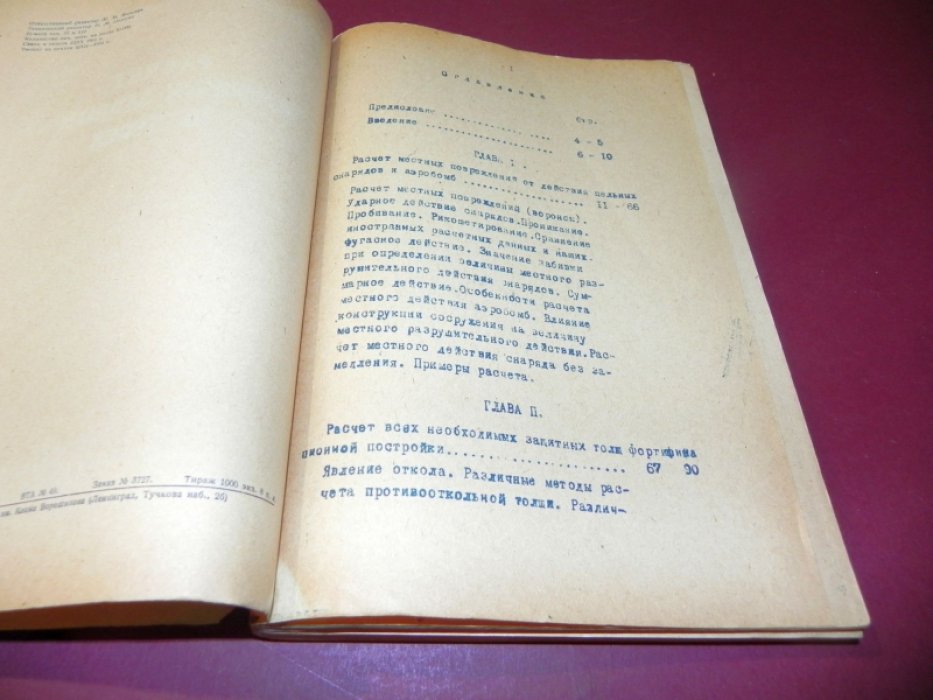 Тираж 1000 экз.
Заказ № 3727.
(Ленинград, Тучкова наб., 2б)
I
Оглавление
Стр.
Предисловие .................... 4 - 5
Введение ...................... 6 - 10
ГЛАВА I.
Расчет местных повреждения от действия цельных
снарядов и аэробомб .................... 11 - 66
Расчет местных повреждений (воронок).
Ударное действие снарядов.Проникание.
Пробивание. Рикошетирование.Сравнение
иностранных расчетных данных и наших.
Фугасное действие. Значение забивки
при определении величины местного раз-
рушительного действия снарядов. Сум-
марное действие.Особенности расчета
местного действия аэробомб. Влияние
конструкции сооружения на величину
местного разрушительного действия.Рас-
чет местного действия снаряда без за-
медления. Примеры расчета.
ГЛАВА П.
Расчет всех необходимых защитных толщ фортифика
ционной постройки........................ 67 90
Явление откола. Различные методы рас-
чета противооткольной толщи. Различ-